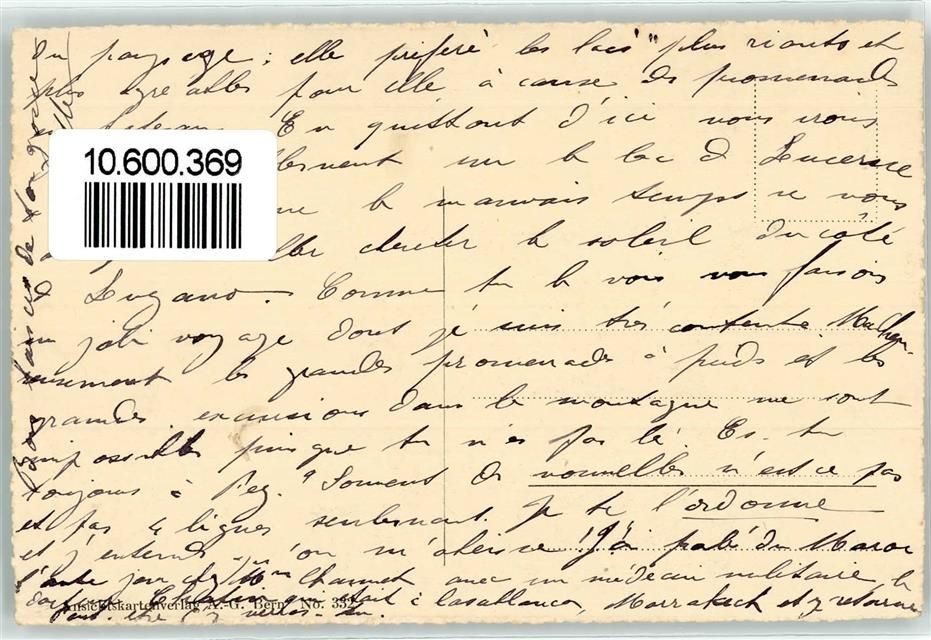 du paysage ; elle préfère les lacs plus riants et
plus agréables pour elle à cause des promenades
en bateau. En quittant d'ici nous irons
10.600.369
sur le lac de Lucerne
le mauvais temps ne nous
chercher le soleil du côté
de Lugano. Comme tu le vois nous faisons
un joli voyage dont je suis très contente Malheu-
reusement les grandes promenades à pieds et les
grandes excursions dans la montagne me sont
impossibles puisque tu n'es pas là. Es-tu
toujours à Fez. Souvent de nouvelles n'est ce pas
et pas 4 lignes seulement. Je te l'ordonne
et j'entends qu'on m'obéisse ! J'ai parlé du Maroc
l'autre jour chez Mme avec un médecin militaire, le
docteur qui était à Casablanca, Marrakech et y retourne
Ansichtskartenverlag A.-G. Bern. No. 332
peut-être
Bons baisers de ton